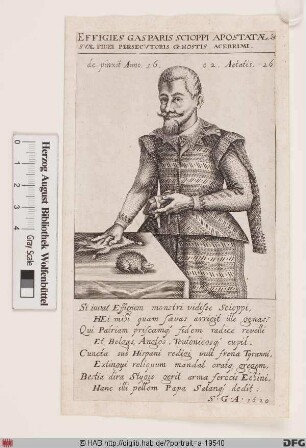 EFFIGIES GASPARIS SCIOPPI APOSTATÆ, &
SUÆ FIDEI PERSECUTORIS & HOSTIS ACERRIMI.
de pinxit Anno. 16 02. Aetatis. 26
Si iuvat Effigiem monstri vidisse Scioppi,
HEi mihi quam sævas arrigit ille genas:
Qui Patriam priscamq; fidem radice revelli
Et Belgas, Anglos, Teutonicosq; cupit.
Cuncta sub Hispani redigi vult frena Tyranni,
Extingui reliquum mandat & orbe gregem.
Bestia dira Stygis gerit arma ferocis Echini,
Hanc illi pellem Papa Satanq; dedit:
S. G. A. 1620
Herzog August Bibliothek Wolfenbüttel
Gray Scale
0 1 2 3 4
© HAB http://diglib.hab.de?portrait=a-19540